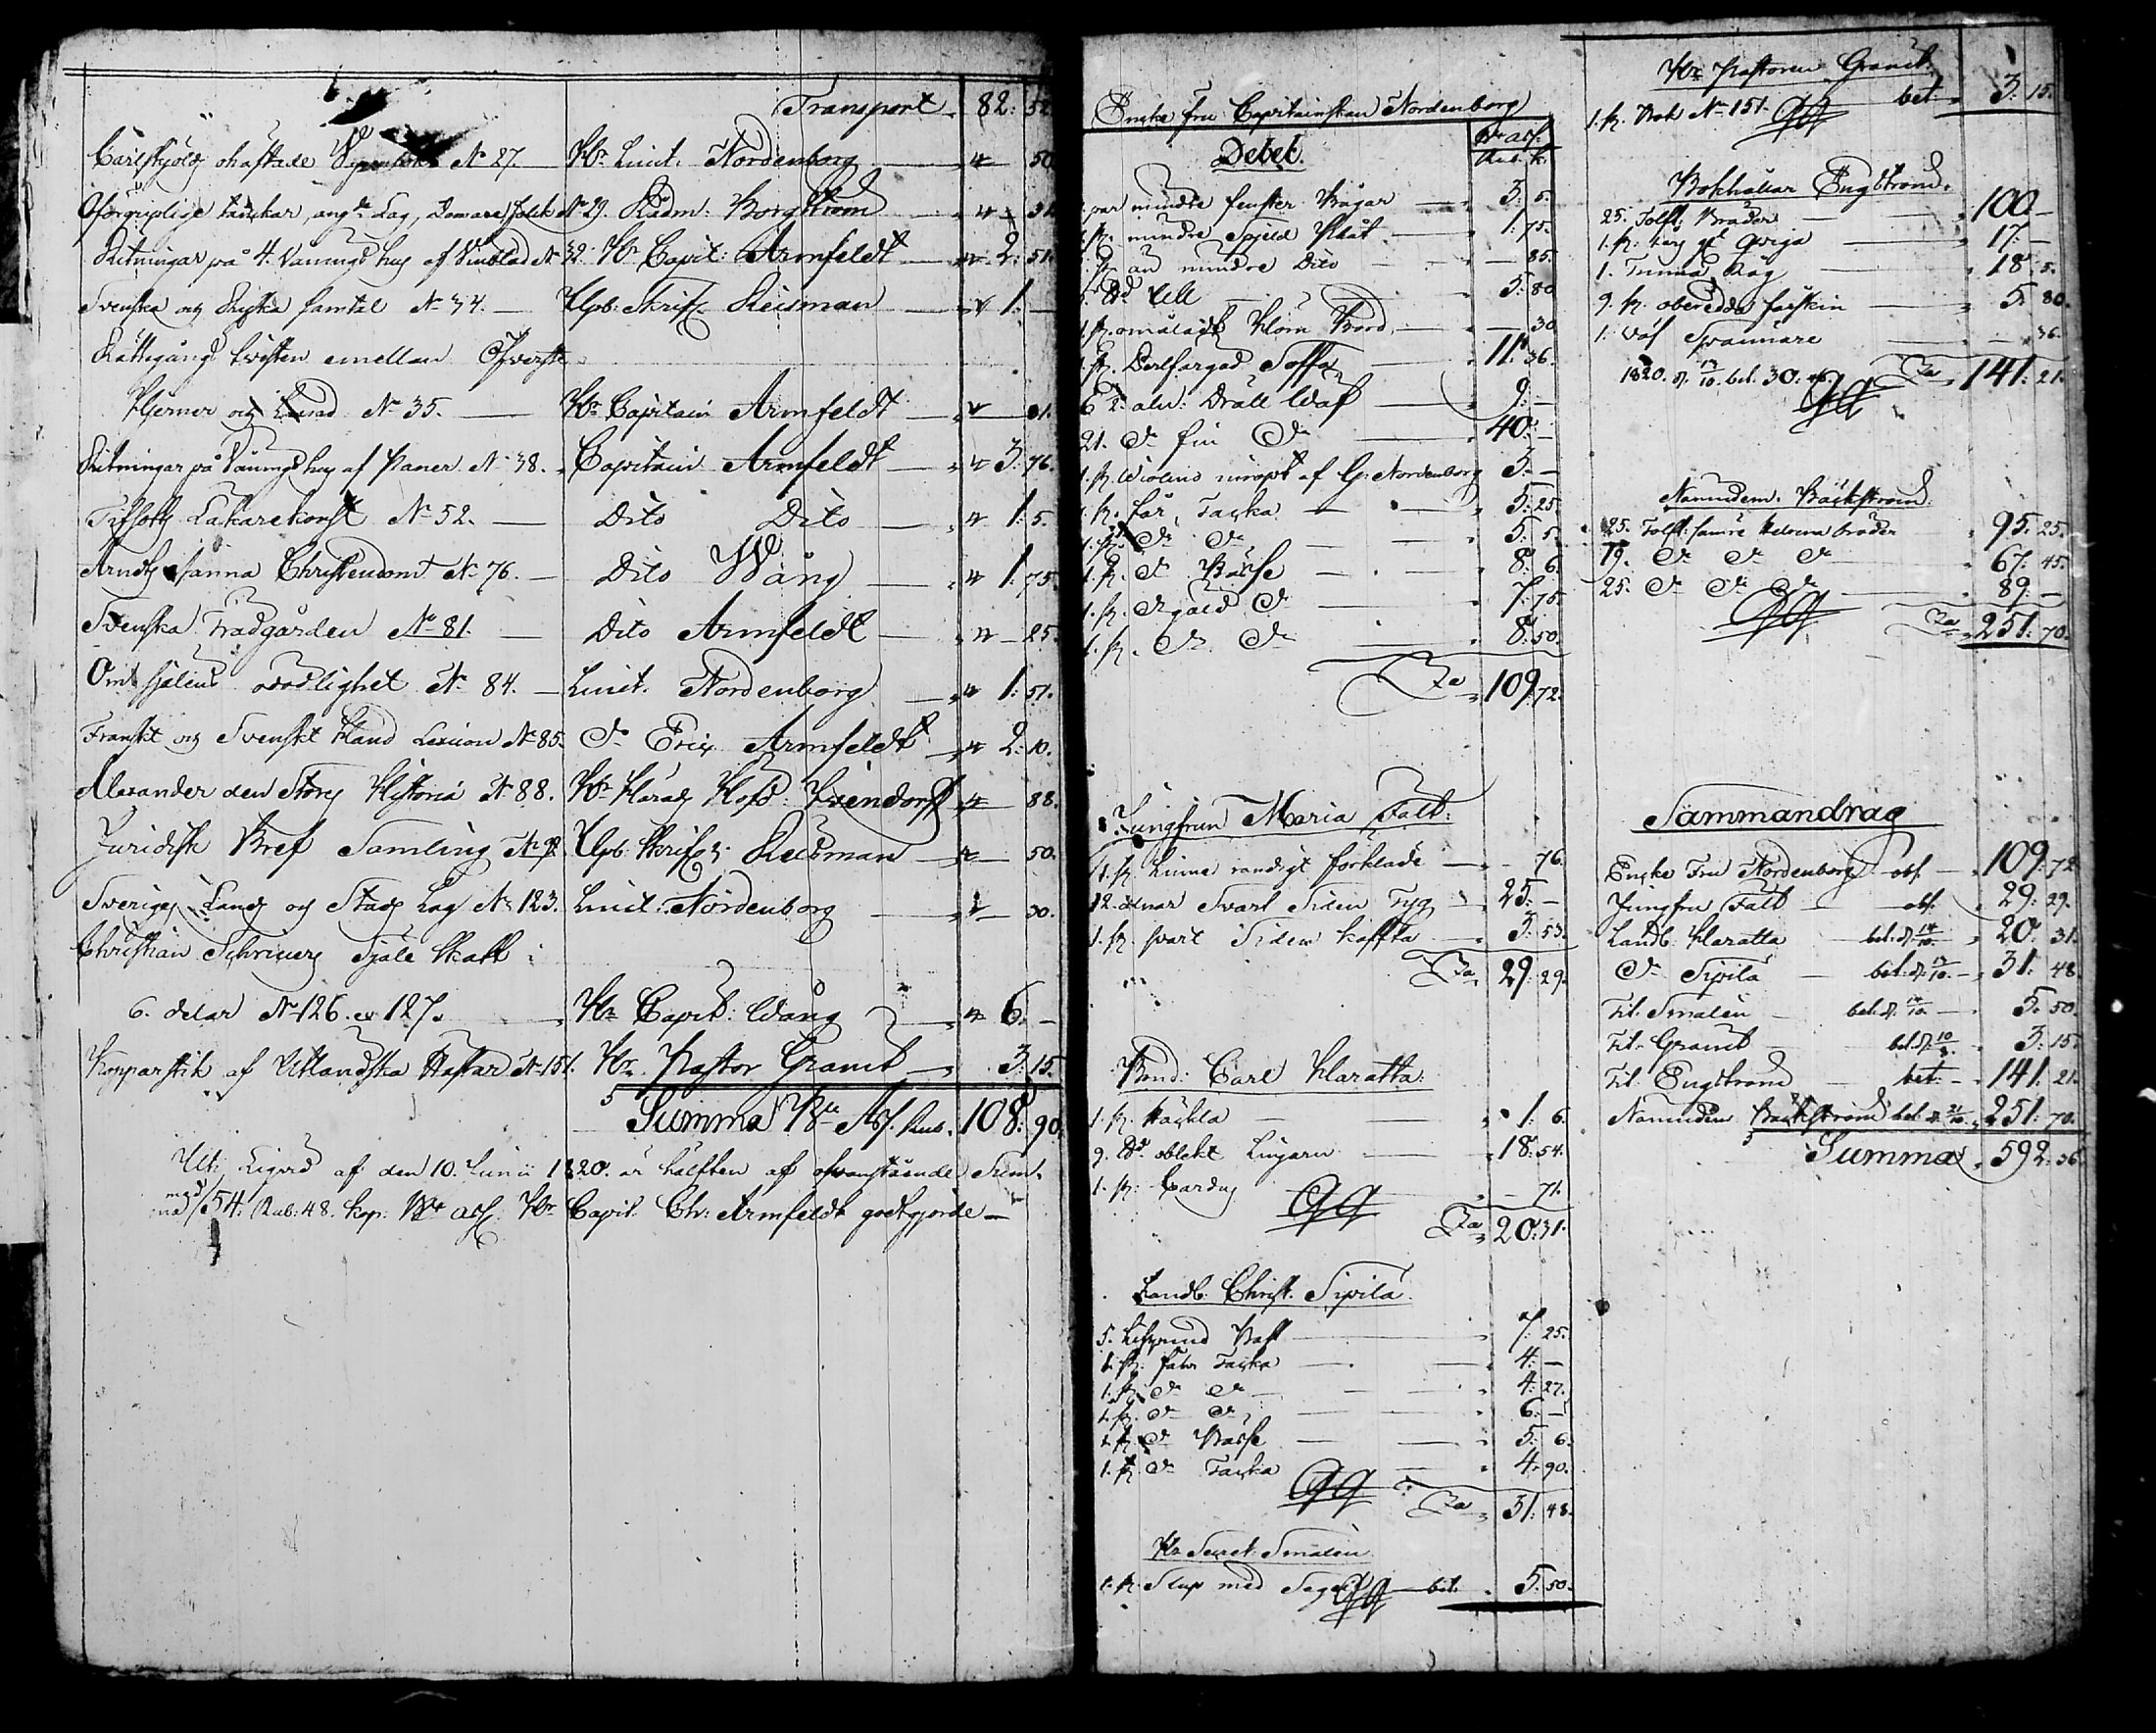 Transport 82: 52
Carlskjöld ohäftade N° 27. H:r Lieut: Nordenborg 50
Oförgriplige tankar, ang:de Lag, Domare N° 29. Rådm: Borgström
Ritningar på 4. Vånings hus af Wimblad N° 32. H:r Capit: Armfeldt 2: 51.
Svenska och Ryska samtal N° 34. Upb: Skrif: Reisman 1: —
Rättegångs twisten emellan Öfverste
Hjerner och Lund N° 35. H:r Capitain Armfeldt 01.
Ritningar på Vånings hus af Paner N° 38. Capitain Armfeldt 3: 76.
Tissots Läkarekonst N° 52. Dito Dito 1: 5.
Arndts sanna Christendom N° 76. Dito Wång 1: 75.
Svenska Trädgården N° 81. Dito Armfeldt 25.
Om Själens odödlighet N° 84. Lieut. Nordenborg 1: 51.
Franskt och Svenskt Hand Lexicon N° 85. D:o Eric Armfeldt 2: 10.
Alexander den Stores Historia N° 88. H:r Härads Höfd: 88.
Juridisk Bref Samling N° 92. Upb: Skrif: Reisman 50.
Sveriges Lands och Stads Lag N° 123. Lieut: Nordenborg 30.
Christian Schrivers Själe Skatt i
6. delar N° 126. et 127. H:r Capit: Wång 6. —
Kopparstik af Utländska Hästar N° 151. H:r Pastor Granit 3: 15.
Summa B:co Ass. Rub. 108: 90.
Utj Liqvid af den 10. Junii 1820. är hälften af ofvanstående Sum.
med 54. Rub: 48. kop: B:co ass: H:r Capit. Ch: Armfeldt godtgjorde —
Enke fru Capitainskan Nordenborg
Debet.
B:co ass:
Rub. k.
par mindre fenster Bågar 3: 5.
mindre Spjeld 1: 75.
än mindre Dito 85.
Ull 5: 80
1. st. omåladt Hörn Bord 30
1. st. Perlfärgad Soffa 11: 36.
6 ½ aln: Dräll Wäf 9: —
21. D:o fin D:o 40: —
1. st. Violins inropt af G: Nordenborg 3: —
1. st. får, Tacka 5: 25.
1. st. D:o D:o 5: 5.
1. st. D:o Basse 8: 6.
1. st. D:o gäld D:o 7: 75.
1. st. D:o D:o 8: 50.
S:a 109: 72.
Jungfrun Maria Falt:
1. st. Linne randigt förkläde 76.
12. alnar Svart Siden Tyg 25: —
1. st. svart Siden koffta 3: 53.
S:a 29: 29.
Bond: Carl Haratta:
1. st. Häckla 1: 6.
9. oblekt Lingarn 18: 54.
1. st. Cardus 71.
S:a 20: 31.
Landb: Christ. Sipilä.
5. Lispund Bast 7: 25.
1. st. får Tacka 4: —
1. st. D:o D:o 4: 27.
1. st. D:o D:o 6: —
1. st. D:o Basse 5: 6.
1. st. D:o Tacka 4: 90.
S:a 31: 48.
H:r Secret. Smalén
1. st. Slup med Segel bet. 5: 50.
H:r Pastoren Granit.
1. st. Bok N° 151. bet. 3: 15.
Bokhållar Engström.
25. Tolft. Bräder 100 —
1. st. qviga 17: —
1. Tunna Råg 18: 5.
9. st. oberedda fårskin 5: 80.
1. Väf Spännare 36.
1820. d. 17/10. bet. 30. S:a 141: 21.
Nämndem: Bäckström.
25. Tolft. sämre bräder 95: 25.
19. D:o D:o D:o 67: 45.
25. D:o D:o D:o 89: —
S:a 251: 70.
Sammandrag
Enke Fru Nordenborg obs. 109: 72
Jungfru Falt obs. 29: 29.
Landb. Haratta bet. d. 20: 31.
D:o Sipilä bet. d. 31: 48
Tit. Smalén bet. d. 5: 50.
Tit. Granit bet. d. 3: 15.
Tit. Engström bet. 141: 21.
Nämndem Bäckström bet. d. 251: 70.
Summa 592: 36.